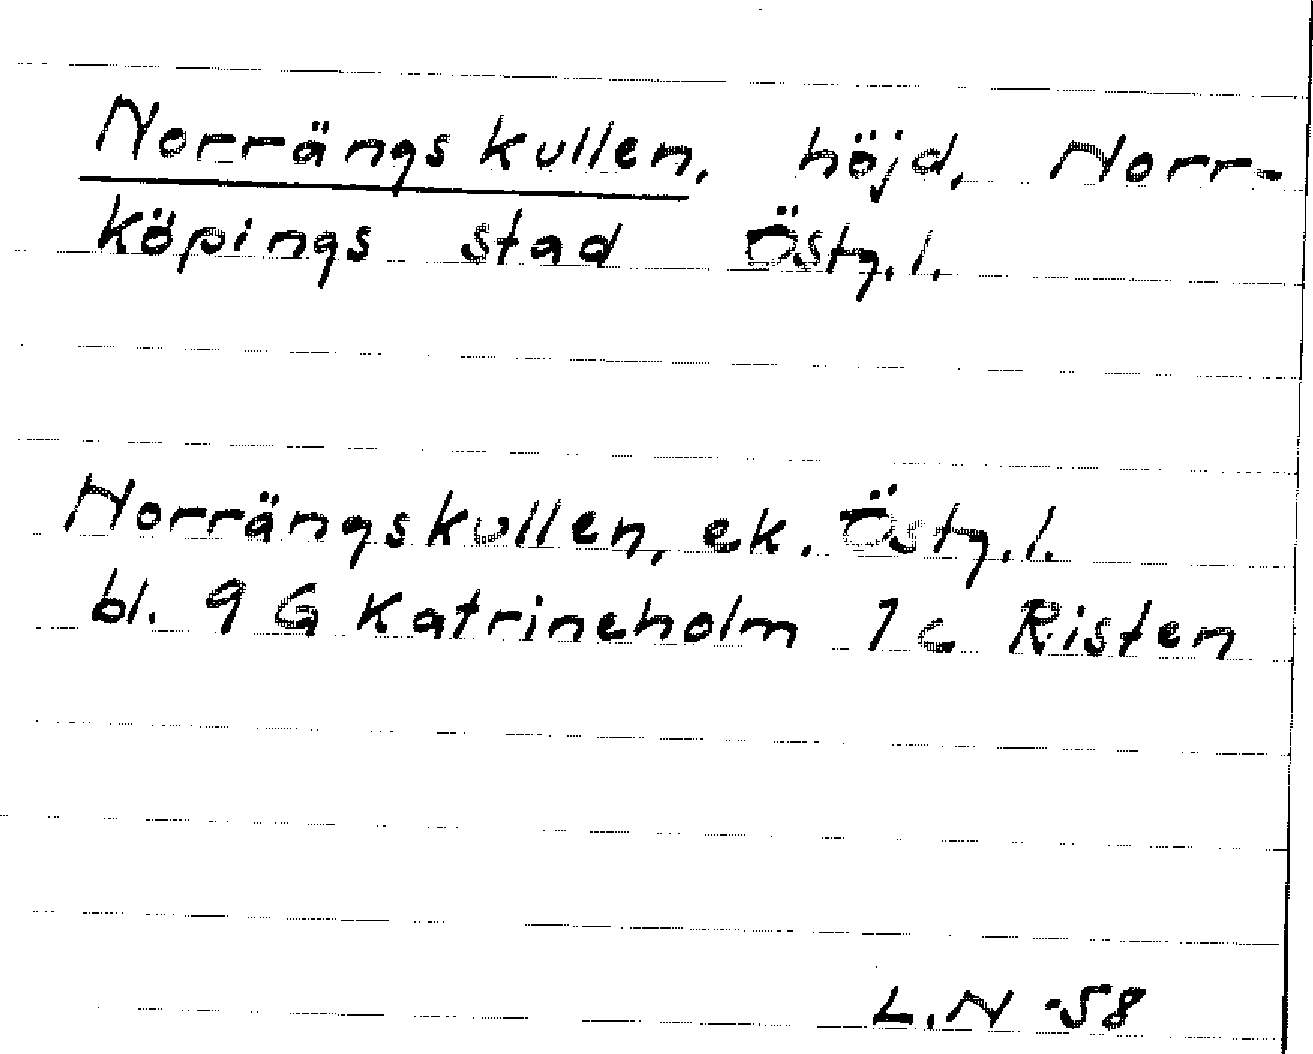 Norrängskullen, höjd, Norr-
köpings stad Östg.l.
Norrängskullen, ek. Östg.l.
bl. 9 G Katrineholm 1c Risten
L.N -58